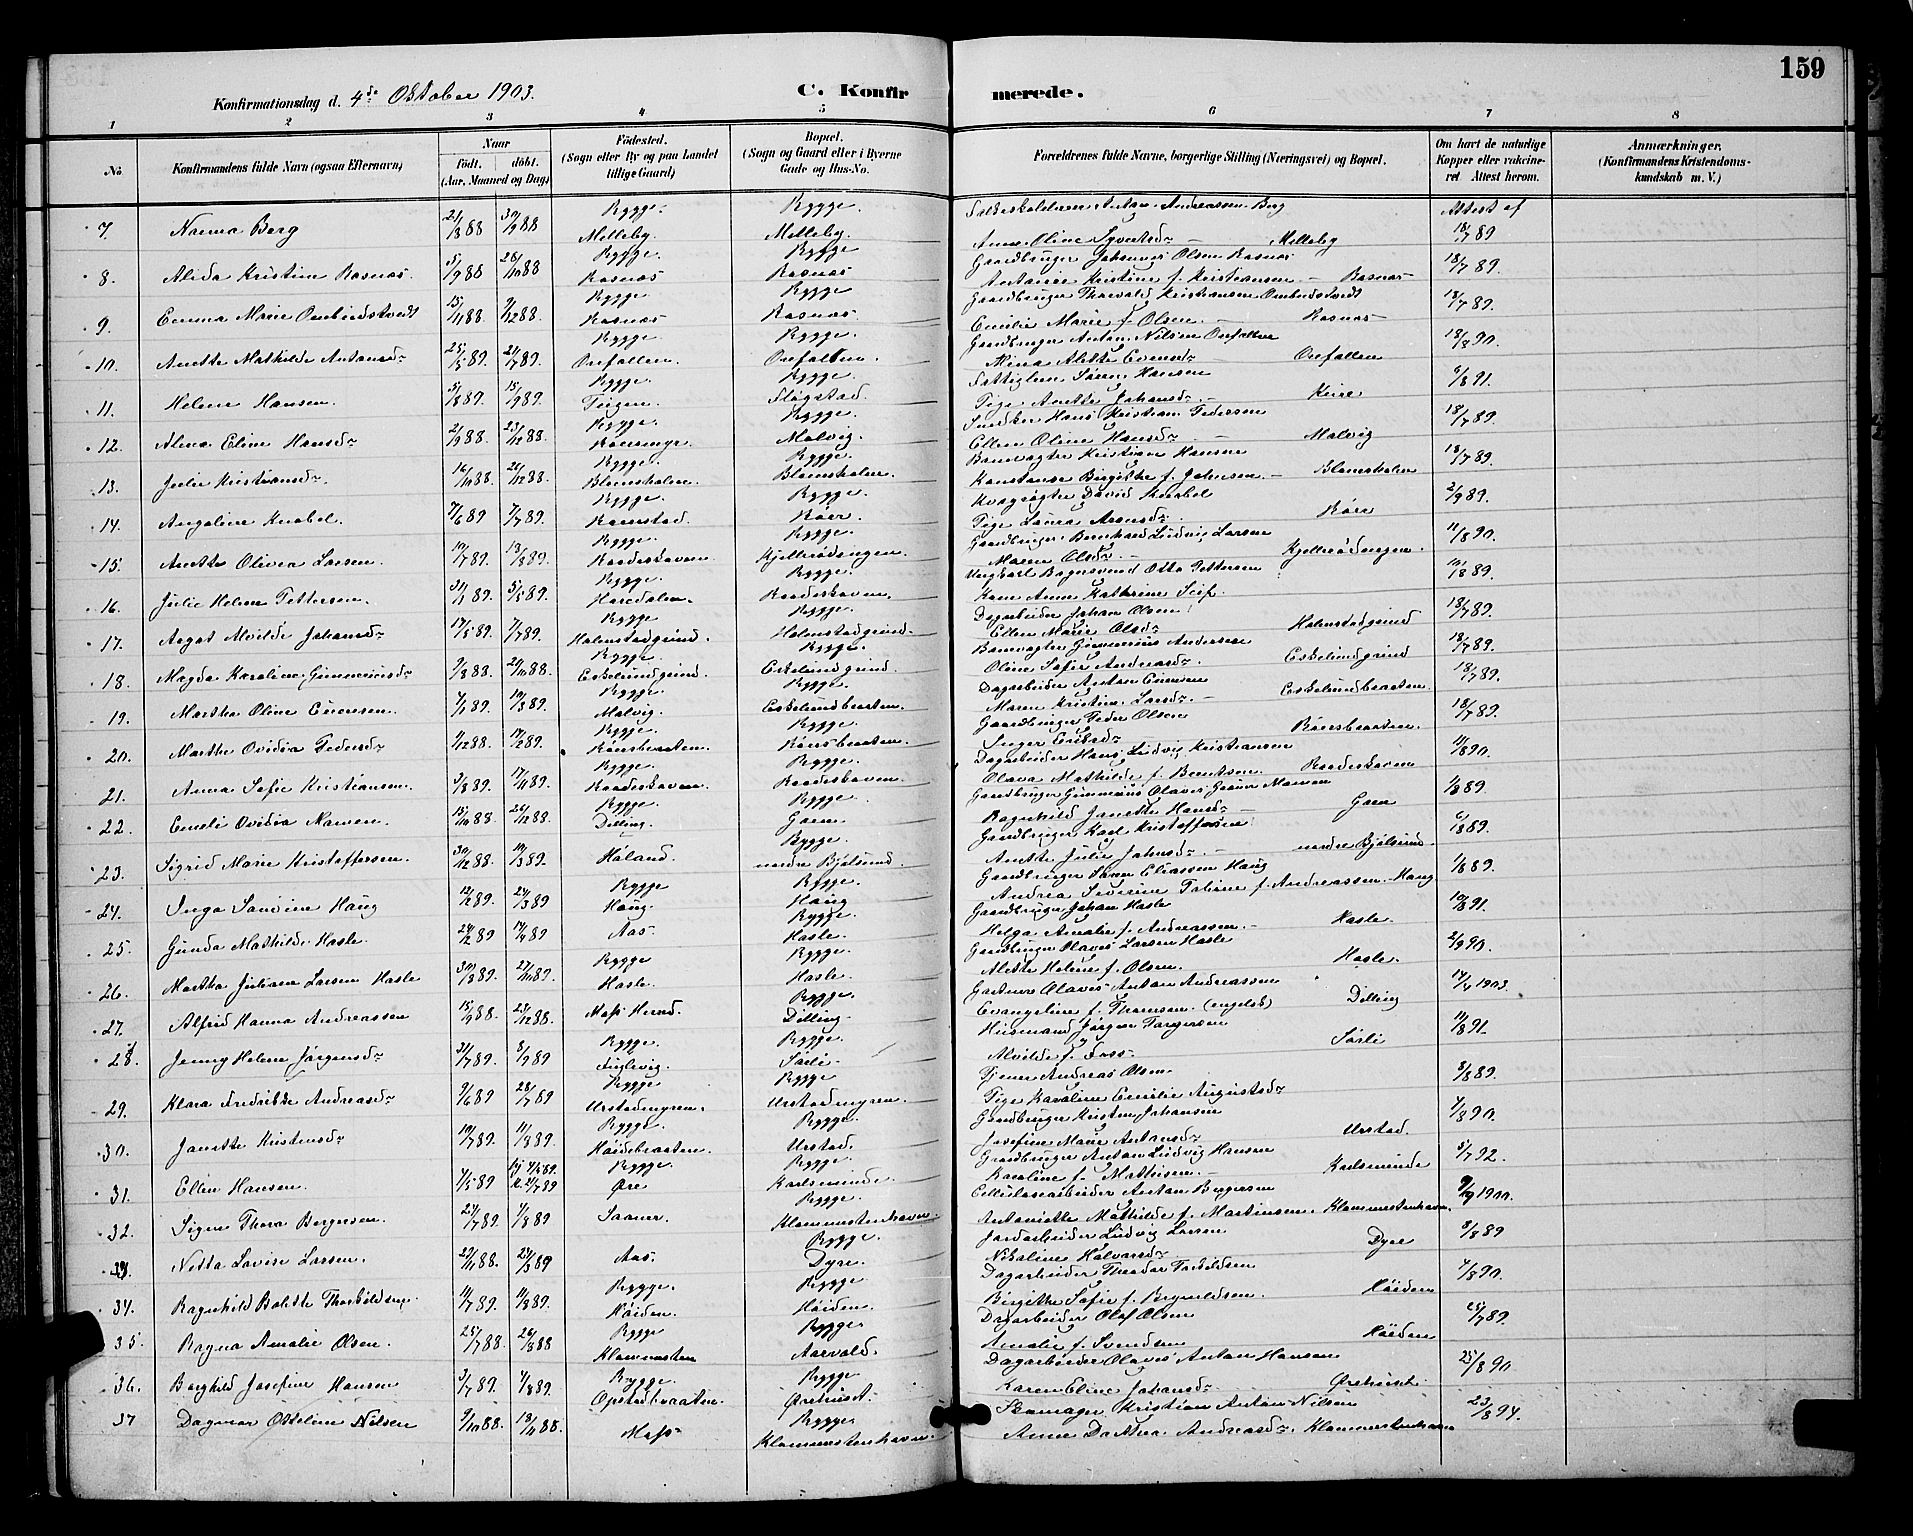 159
Konfirmationsdag d. 4de Oktober 1903. C. Konfirmerede.
1 2 3 4 5 6 7 8
No Konfirmandens fulde Navn (ogsaa Efternavn) Naar født. døbt. (Aar, Maaned og Dag) Fødested. (Sogn eller By og paa Landet tillige Gaard) Bopæl. (Sogn og Gaard eller i Byerne Gade og Hus-No. Forældrenes fulde Navne, borgerlige Stilling (Næringsvei) og Bopæl. Om havt de naturlige Kopper eller vakcineret Attest herom. Anmærkninger. (Konfirmandens Kristendomskundskab m. V.)
7. Nanna Berg 21/8 88 30/9 88 Rygge Melleby. Rygge. Melleby. Andreassen Berg Anne Oline Melleby Attest af 18/7 89
8. Alida Kristine Rosnæs 5/9 88 28/10 88 Rygge. Rosnæs Rygge Rosnæs Gaardbruger Johannes Olsen Rosnæs Kristine f. Kristiansen – Rosnæs 18/7 89.
9. Emma Marie Ombudstvedt 15/11 88 9/12 88. Rygge Rosnæs Rygge Rosnæs Gaardbruger Thorvald Kristiansen Ombudstvedt Emilie Marie f. Olsen. – Rosnæs 18/7 89.
10. Anette Mathilde Antonsdr 25/5 89. 21/7 89. Rygge. Orefallen. Rygge. Orefallen. Gaardbruger Anton Nilsen Orefallen Mina Alette Evensdr Orefallen 18/8 90.
11. Helene Hansen. 5/8 89. 15/9 89. Rygge. Teigen. Rygge. Fløgstad. Søren Hansen Pige Anette Johansdr. – 6/8 91.
12. Alma Eline Hansdr 2/9 88. 23/12 88. Rygge. Rygge Malvig. Snedker Hans Kristian Pedersen Ellen Oline Hansdr. – Malvig 18/7 89.
13. Julie Kristiansdr. 16/10 88. 21/12 88. Rygge. Blomsholm. Rygge. Blomsholm. Banevogter Kristian Hansen Konstanse Birgitte f. Johnsen. – Blomsholm 18/7 89.
14. Angeline Knobel. 7/6 89 7/7 89. Rygge. Rygge. Røer. David Knobel Pige Laura Røer 2/9 89.
15. Anette Olivia Larsen. 10/7 89. 13/8 89. Rygge. Raadeskoven. Rygge. Kjellerødengen. Gaardbruger Bernhard Ludvig Larsen Maren Olsdr. – Kjellerødengen. 11/8 90.
16. Julie Helene Pettersen. 31/1 89. 5/5 89. Rygge. Haredalen. Rygge. Raadeskoven. Ungkarl Otto Pettersen Kone Anne Kathrine 10/8 89.
17. Aagot Alvilde Johansdr 17/5 89. 7/7 89. Rygge Halmstadgrind. Rygge. Halmstadgrind. Dagarbeider Johan Olsen Ellen Marie Olsdr Halmstadgrind 18/7 89.
18. Magda Karoline Gunneriusdr 9/8 88. 21/10 88. Rygge. Eskelundgrind. Rygge. Eskelundgrind. Banevogter Gunnerius Andersen Oline Sofie Andreasdr. Eskelundgrind 18/7 89.
19. Martha Oline Evensen. 7/1 89. 10/3 89. Rygge Malvig. Rygge. Eskelundbraaten. Dagarbeider Anton Evensen Maren Kristine Larsdr. – Eskelundbraaten. 18/7 89.
20. Marthe Ovidia Pedersdr 9/12 88. 17/2 89. Rygge. Rønsbraaten. Rygge Rønsbraaten. Gaardbruger Peder Olsen Inger Rønsbraaten. 18/7 89.
21. Anna Sofie Kristiansen. 3/8 89. 17/11 89. Rygge. Raadeskoven. Rygge. Raadeskoven. Dagarbeider Hans Ludvig Kristiansen Olava Mathilde f. Berntsen. Raadeskoven 11/8 90.
22. Emeli Ovidia Nansen. 15/10 88. 26/12 88. Rygge Dilling. Rygge Goen. Gaardbruger Gunnerius Olaves Ragnhild Janette Hansdr – Goen 1/8 89.
23. Sigrid Marie Kristoffersen. 30/12 88. 10/3 89. Høland. Rygge nordre Bjølsund. Gaardbruger Karl Kristoffersen Anette Julie Johnsdr. – nordre Bjølsund 6/8 89.
24. Inga Sandine Haug 12/2 89. 24/3 89 Rygge Haug. Rygge. Haug Gaardbruger Søren Eliassen Haug Andrea Severine Tobine f. Andreassen. Haug 1/8 89.
25. Gunda Mathilde Hasle. 24/2 89 14/4 89 Aas. Rygge Hasle. Gaardbruger Johan Hasle Helga Amalie f. Andreassen. – Hasle. 10/8 91.
26. Martha Juliane Larsen Hasle 31/8 89. 27/10 89. Rygge Hasle. Rygge. Hasle. Gaardbruger Olaves Larsen Hasle Alette Helene f. Olsen. Hasle. 2/9 90.
27. Alfrid Hanna Andreassen 15/9 88. 23/12 88. Moss Rygge. Dilling. Gartner Olaves Anton Andreassen Evangeline f. Thomsen. (engelsk) Dilling 14/4 1903.
28. Jenny Helene Jørgensdr 31/7 89. 8/9 89 Rygge. Fuglevig. Rygge. Sørli Husmand Jørgen Torgersen Alvilde f. Foss. Sørli 11/8 91.
29. Klara Fredrikke Andreasdr 9/6 89 28/7 89 Rygge Urstadmyren. Rygge Urstadmyren. Tjener Andreas Olsen Pige Karoline Emilie Augustsdr 3/8 89.
30. Janette Kristensdr 10/7 89. 11/8 89. Rygge. Høidebraaten. Rygge. Urstad. Gaardbruger Kristen Johansen Josefine Marie Antonsdr Urstad. 4/8 90.
31. Ellen Hansen. 4/5 89 21/7 89 Rygge. Øre Rygge. Karlsminde. Gaardbruger Anton Ludvig Hansen Karoline f. Mathisen. – Karlsminde 5/7 92.
32. Signe Thora Borgersen. 21/7 89. 4/8 89 Saaner. Rygge. Klommestenhavn. Cellulosearbeider Anton Borgersen Antonette Mathilde f. Martinsen. Klommestenhavn. 9/9 1900.
33. Netta Lovise Larsen. 29/11 88. 24/3 89 Aas. Rygge. Dyre. Jordarbeider Ludvig Larsen Nikoline Halvorsdr. Dyre 8/8 89
34. Ragnhild Bolette Thorkildsen. 11/7 89. 11/8 89. Rygge. Høiden. Rygge Høiden. Dagarbeider Theodor Torkildsen Birgitte Sofie f. Høiden 4/8 90.
35. Ragna Amalie Olsen. 25/7 88. 26/8 88 Rygge Klommesten Rygge Aarvold. Dagarbeider Olaf Olsen Amalie f. Svendsen Høiden 25/7 89.
36. Borghild Josefine Hansen 3/7 89. 4/8 89. Rygge. Opstadbraaten. Rygge Ørehuset. Dagarbeider Olaves Anton Hansen Karen Eline Johansdr. Ørehuset. 25/8 90.
37 Dagmar Otteline Nilsen 9/10 88. 18/11 88. Moss Rygge Klommestenhavn. Skomager Kristian Anton Nilsen Anne Dorthea Andreasdr. Klommestenhavn 23/8 94.